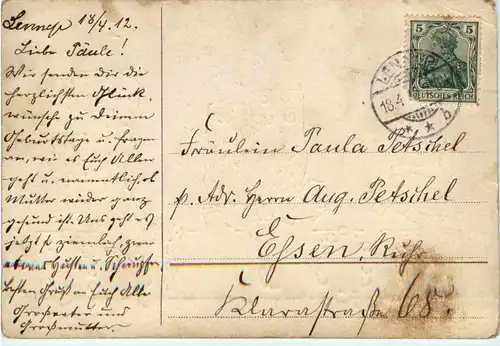 Lennep 18/4.12.
Liebe Päule!
Wir senden Dir die
herzlichsten Glück-
wünsche zu Deinem
Geburtstage u. fragen
an, wie es Euch Allen
geht u. namentlich ob
Mutter wieder ganz
gesund ist. Uns geht es
jetzt so ziemlich, zwar
etwas Husten u. Schnupfen
besten Gruß an Euch Alle
Großvater und
Großmutter.
5 5
DEUTSCHES REICH
18.4
* * b
Fräulein Paula Petschel
p. Adr. Herrn Aug. Petschel
Essen, Ruhr
Klarastraße 68.